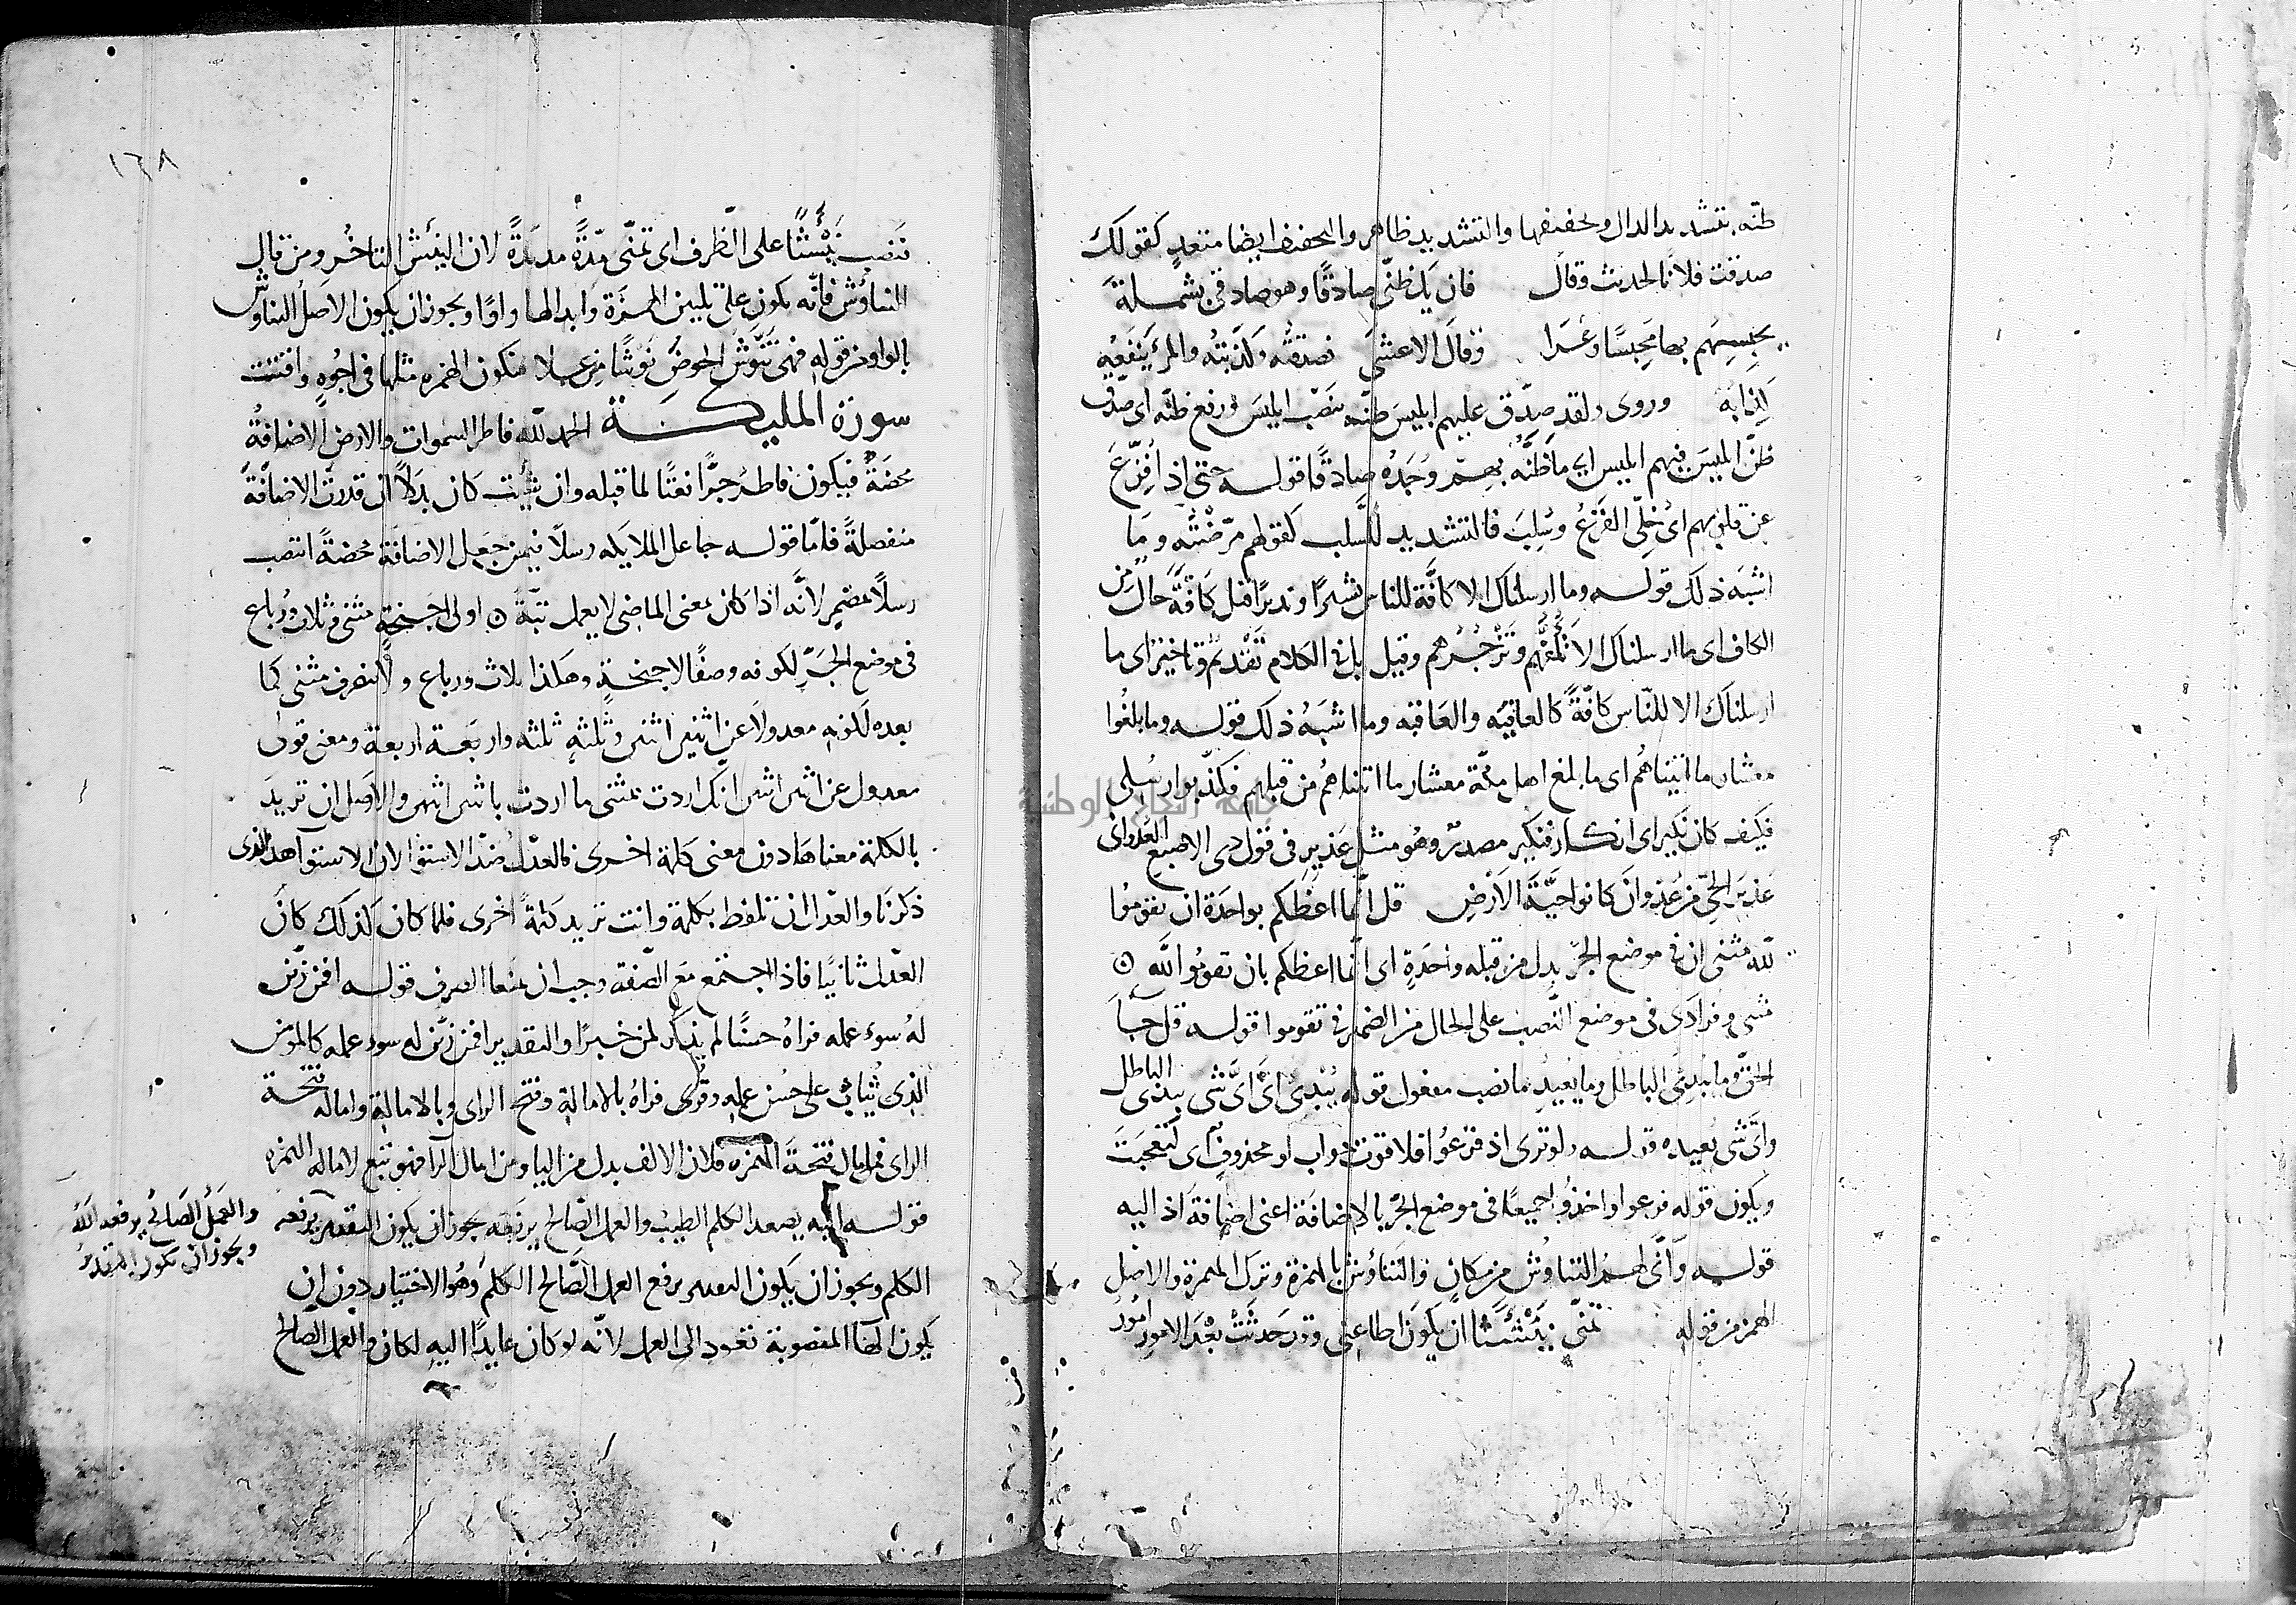 ظنّه بتشديد الدال وتخفيفها والتشديد ظاهر والتخفيف ايضا متعدٍ كقولك
صدقت فلانا الحديث وقال فان يك ظنّي صادقًا وهو صادقي بشملة
يحبسهم بها محبسًا وعرا وقال الاعشى فصدقته وكذبته والمرء ينفعه
كذابه وروى ولقد صدّق عليهم ابليس ظنّه بنصب ابليس ورفع ظنّه اى صدق
ظنّ ابليس فيهم ابليس اى ما ظنّه بهم وجده صادقًا قوله حتى اذا فزّع
عن قلوبهم اى خلّى الفزع وسلب فالتشديد للسلب كقولهم مرّضته وما
اشبه ذلك قوله وما ارسلناك الا كافّة للناس بشيرًا ونذيرًا قيل كافّة حال من
الكاف اى ما ارسلناك الا تمنعهم وتزجرهم وقيل بل في الكلام تقديم وتاخير اى ما
ارسلناك الا للناس كافّة كالعافيه والعاقبه وما اشبه ذلك قوله وما بلغوا
معشار ما اتيناهم اى ما بلغ اهل مكّة معشار ما اتيناهم من قبلهم فكذّبوا رسلي
فكيف كان نكير اى انكار فنكير مصدر وهو مثل عذير في قول ذى الاصبع العدواني
عذير الحىّ من عدوان كانوا حيّة الارض قل انّما اعظكم بواحدة ان تقوموا
للّه مثنى ان في موضع الجرّ بدل من قبله واحدةٍ اى انّما اعظكم بان تقوموا للّه
مثنى وفرادى في موضع النّصب على الحال من الضمير في تقوموا قوله قل جا
الحقّ وما يبدئ الباطل وما يعيد ما نصب مفعول قوله يبدئ اى اىّ شى يبدى الباطل
واىّ شى يعيده قوله ولو ترى اذ فزعوا فلا فوت جواب لو محذوف اى لتعجبت
ويكون قوله فزعوا واخذوا جميعًا في موضع الجرّ بالاضافة اعنى اضافة اذ اليه
قوله وانّى لهم التناوش من مكان والتناؤش بالهمزة وترك الهمزة والاصل
الهمز من قوله تمنّى نئيشًا ان يكون اطاعني وقد حدثت بعد الامور امور
١٦٨
فنصب نئيشًا على الظرف اى تمنّى مدّةً مديدةً لان النئش التاخر ومن قال
التناوش فانّه يكون على تليين الهمزة وابدالها واوًا ويجوز ان يكون الاصل التناوش
بالواو من قوله فهى تنوش الحوض نوشًا من علا فتكون الهمزه مثلها في اجوه واقتت
سورة المليكة الحمد للّه فاطر السموات والارض الاضافةُ
محضة فيكون فاطر جرًّا نعتًا لما قبله وان شيت كان بدلاً ان قدرت الاضافة
منفصلةً فامّا قوله جاعل الملايكه رسلاً فيمن جعل الاضافة محضةً انتصب
رسلاً بمضمر لانّه اذا كان بمعنى الماضى لا يعمل بتّةً اولى اجنحةٍ مثنى وثلاث ورباع
في موضع الجرّ لكونه وصفًا لاجنحةٍ وهكذا ثلاث ورباع ولا ينصرف مثنى كما
بعده لكونه معدولا عن اثنين اثنين وثلثه ثلثه واربعة اربعة ومعنى قولى
معدول عن اثنين اثنين انك اردت بمثنى ما اردت باثنين اثنين والاصل ان تريد
بالكلمة معناها دون معنى كلمة اخرى فالعدل ضدّ الاستوا لان الاستوا هذا الذى
ذكرنا والعدل ان تلفظ بكلمة وانت تريد كلمةً اخرى فلما كان كذلك كان
العدل ثانيًا فاذا اجتمع مع الصّفة وجب ان يمنعا الصرف قوله افمن زيّن
له سوء عمله فراه حسنًا لم يذكر لمن خبرًا والتقدير افمن زيّن له سوء عمله كالمؤمن
الذى يثاب على حسن عمله وقرى فراه بالامالة وفتح الراى وبالامالة وامالة فتحة
الراى فمن امال فتحة الهمزه فلان الالف بدل من اليا ومن امال الرا فهو تبع لاماله الهمزه
قوله اليه يصعد الكلم الطيب والعمل الصالح يرفعه يجوز ان يكون التقدير يرفعه
الكلم ويجوز ان يكون التقدير يرفع العمل الصّالح الكلم وهو الاختيار دون ان
يكون الها المنصوبة تعود الى العمل لانّه لو كان عايدًا اليه لكان والعمل الصالح
والعمل الصالح يرفعه اللّه
ويجوز ان يكون التقدير